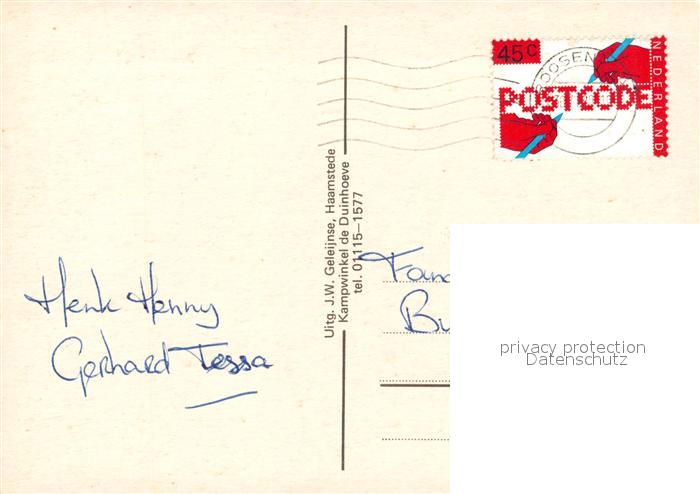 45c
NEDERLAND
POSTCODE
ROOSEN
Uitg. J.W. Geleijnse, Haamstede
Kampwinkel de Duinhoeve
tel. 01115-1577
Henk Henny
Gerhard Tessa
Fam
Bu
privacy protection
Datenschutz